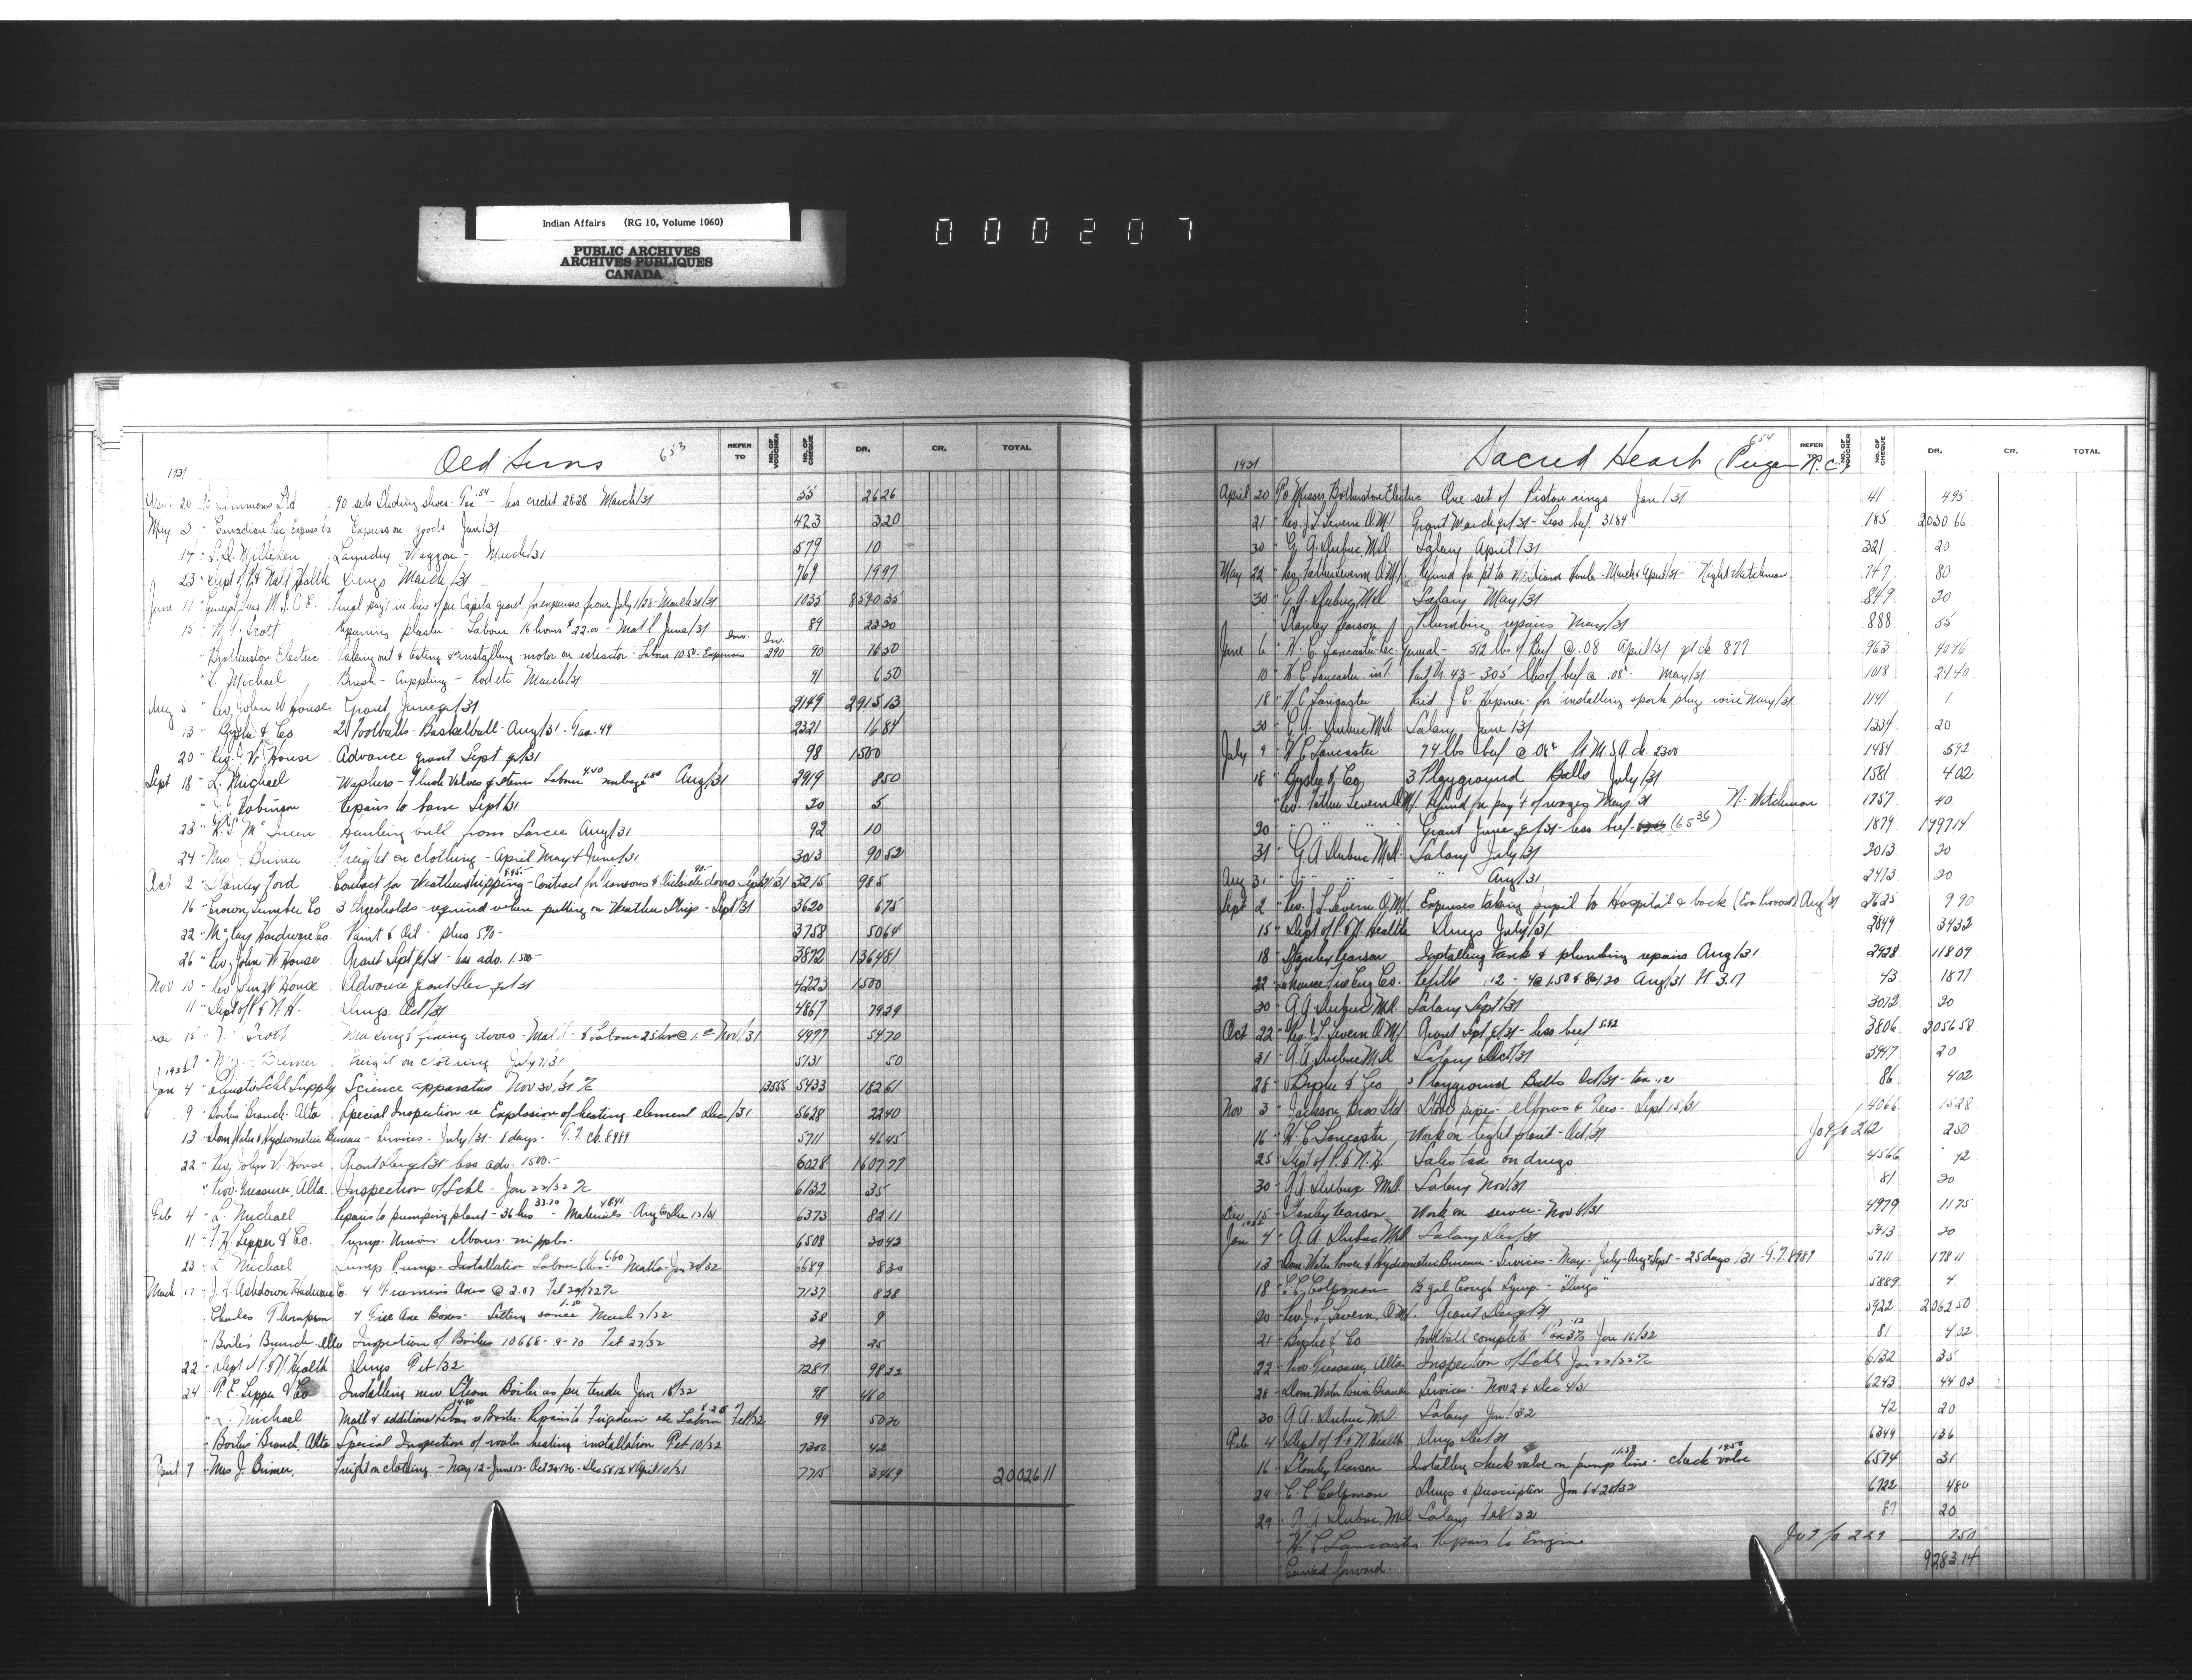 Indian Affairs (RG 10, Volume 1060)
PUBLIC ARCHIVES
ARCHIVES PUBLIQUES
CANADA
000207
Old Suns 653
REFER TO NO. OF VOUCHER NO. OF CHEQUE DR. CR. TOTAL
1931
20 Ltd 90 sets Sliding shoes - Tax .54 - less credit 28.28 March/31 55 26 26
May 5 - Canadian Pac Express Co Express on goods Jan/31 423 3 20
14 - S.D. Milliken Laundry Waggon - March/31 579 10
23 - Dept of P & Nat'l Health Drugs March/31 769 19 97
June 11 - General Treas. M.S.C.C. Final pay't in lieu of per Capita grant for expenses from July 1/28 - March 31/31 1035 8590 35
15 - Scott Repairing plaster - Labour 16 hours $22.00 - Mat'l June/31 89 22 20
- Brotherston Electric Taking out & testing & reinstalling motor on extractor - Labour 10.50 - Expenses Inv. Inv. 290 90 16 50
- L. Michael Brush - Coppling - Rod etc March/31 91 6 50
Aug 5 - Rev. John W House Grant June qr/31 2149 2915 13
13 - Bysshe & Co 2 Footballs - Basketball - Aug/31 - Tax .49 2321 16 84
20 - Rev. J. W. House Advance grant Sept qr/31 98 1500
Sept 18 - L. Michael Washers - Flush Valves & Stems Labour 4.40 Aug/31 2919 8 50
" Robinson Repairs to Sept/31 20 5
23 " Hauling bull from Sarcee Aug/31 92 10
24 - Mrs J. Brimer Freight on clothing - April May & June/31 3013 90 52
Oct 2 - Stanley Ford Contract for Weatherstripping - Contract for transoms & Outside doors Sept 21/31 3215 98 5
16 - Crown Lumber Co 3 thresholds - required when putting on Weather Strips - Sept/31 3620 6 75
22 - McKay Hardware Co. Paint & Oil - plus 5% - 3758 50 64
26 - Rev. John W House Grant Sept qr/31 - less adv. 1500 - 3872 1364 81
Nov 10 - Rev John W House Advance grant Dec qr/31 4223 1500
11 - Dept of P & N.H. Drugs Oct/31 4867 79 29
15 - Scott Making & fixing doors - Mat'l & Labour 25 hrs @ Nov/31 4977 54 70
Brimer Freight on clothing July 7/31 5131 50
1932
Jan 4 - Schl Supply Science apparatus Nov 30/31 13555 5433 182 61
9 - Boiler Branch - Alta Special Inspection re Explosion of heating element Dec/31 5628 22 40
13 - Dom Water & Hydrometric Bureau - Services - July/31 - 8 days - G.T. ch. 8989 5711 46 45
22 - Rev. John W. House Grant Dec qr/31 less adv. 1500 - 6028 1607 77
" Prov. Treasurer, Alta. Inspection of Schl - Jan 22/32 6132 35
Feb 4 - L. Michael Repairs to pumping plant - 36 hrs 33.70 - Materials 48.41 - Aug to Dec 12/31 6373 82 11
11 - Lepper & Co. Pump - Unions - elbows - nipples - 6508 30 43
23 - L. Michael Sump Pump - Installation Labour 6.60 Matls - Jan 30/32 6689 8 30
March 17 - J.H. Ashdown Hardware Co. 4 Firemens Axes @ 2.07 Feb 29/32 7137 8 28
Charles Thompson 4 Fire Axe Boxes - Setting same 1.50 March 7/32 38 9
- Boiler Branch Alta Inspection of Boilers 10668 - 9 - 70 Feb 27/32 39 25
22 - Dept of P & N. Health Drugs Feb/32 7287 98 22
24 - P.E. Lepper & Co Installing new Steam Boiler as per tender Jan 18/32 98 460
" L. Michael Matl & additional Labour 14.80 re Boiler - Repairs to Frigidaire etc Labour Feb/32 99 50 20
- Boiler Branch, Alta Special Inspection of water heating installation Feb 10/32 7300 42
April 7 - Mrs J. Brimer, Freight on clothing - May 12 - June 13 - Oct - Dec & April 10/31 7715 34 69 20026 11
Sacred Heart (Peigan R.C.) 654
REFER TO NO. OF VOUCHER NO. OF CHEQUE DR. CR. TOTAL
1931
April 20 Brotherston Electric One set of Piston rings Jan/31 41 4 95
21 " Rev. J L Levern O.M.I. Grant March qr/31 - Less beef 31.84 185 2030 66
30 " G. A. Dubuc, M.D. Salary April/31 321 20
May 22 " Rev Father Levern O.M.I. Refund for pt to March & April/31 - Night Watchman 747 80
30 " G. A. Dubuc, M.D. Salary May/31 849 20
Stanley Pearson Plumbing repairs May/31 888 55
June 6 " H. C. Lancaster Rec. General - 512 lbs of Beef @ .08 April/31 pt ck 877 963 40 96
10 " H. C. Lancaster 305 lbs of beef @ .08c May/31 1018 24 40
18 " H. C. Lancaster Paid J. C. Hepner for installing spark plug wire May/31 1141 1
30 " G. A. Dubuc M.D. Salary June/31 1334 20
July 9 " H C Lancaster 74 lbs beef @ .08c ck. 2300 1484 5 92
18 " Bysshe & Co. 3 Playground Balls July/31 1581 4 02
" Rev. Father Levern O.M.I. Refund on pay't of wages May/31 N. Watchman 1757 40
20 " " " Grant June qr/31 - less beef (65 36) 1879 1997 14
31 " G. A. Dubuc M.D. Salary July/31 2013 20
Aug 31 " " " Aug/31 2473 20
Sept 2 " Rev. J L Levern O.M.I. Expenses taking pupil to Hospital & back Aug/31 2625 9 90
15 " Dept of P. & N. Health Drugs July/31 2849 34 32
18 " Stanley Pearson Installing tank & plumbing repairs Aug/31 2928 118 09
22 Fire Eng Co. Refills 12 - 4 @ 1.50 & 8 @ 1.20 Aug/31 Ft 3.17 43 18 77
30 " G. A. Dubuc M.D. Salary Sept/31 3072 20
Oct 22 " Rev. J. L. Levern O.M.I. Grant Sept qr/31 - less beef 5.92 3806 2056 58
31 " G. A. Dubuc M.D. Salary Oct/31 3947 20
28 " Bysshe & Co 3 Playground Balls Oct/31 - tax .12 86 4 02
Nov 3 " Jackson Bros Ltd pipe - elbows & Tees - Sept 15/31 4066 15 28
16 " H. C. Lancaster Work on light plant - Oct/31 212 2 50
25 " Dept of P. & N. H. Sales tax on drugs 4566 12
30 " G. A. Dubuc M.D. Salary Nov/31 81 20
Dec 15 " Stanley Pearson Work on sewer - Nov 6/31 4979 11 75
1932
Jan 4 " G. A. Dubuc M.D. Salary Dec/31 5413 20
13 Dom. Water Power & Hydrometric Bureau - Services - May - July - Aug & Sept - 25 days/31 - G.T. 8989 5711 178 11
18 " C. C. Colpman ½ gal Cough Syrup - "Drugs" 5889 4
20 " Rev. J. L. Levern, O.M.I. Grant Dec qr/31 5922 2062 50
21 " Bysshe & Co Football complete Jan 16/32 81 4 02
22 " Prov. Treasurer, Alta Inspection of Schl Jan 22/32 6132 35
28 " Dom Water Power Branch Services - Nov 2 & Dec 4/31 6243 44 03
30 " G. A. Dubuc M.D. Salary Jan/32 42 20
Feb 4 " Dept of P. & N Health Drugs Dec/31 6349 1 36
16 " Stanley Pearson Installing check valve on pump line - check valve 19.50 6574 31
24 " C. C. Colpman Drugs & prescription Jan 6 & 20/32 6722 4 80
29 " G. A. Dubuc, M.D. Salary Feb/32 87 20
" H. C. Lancaster Repairs to Engine 229 7 50
Carried forward. 9283.14